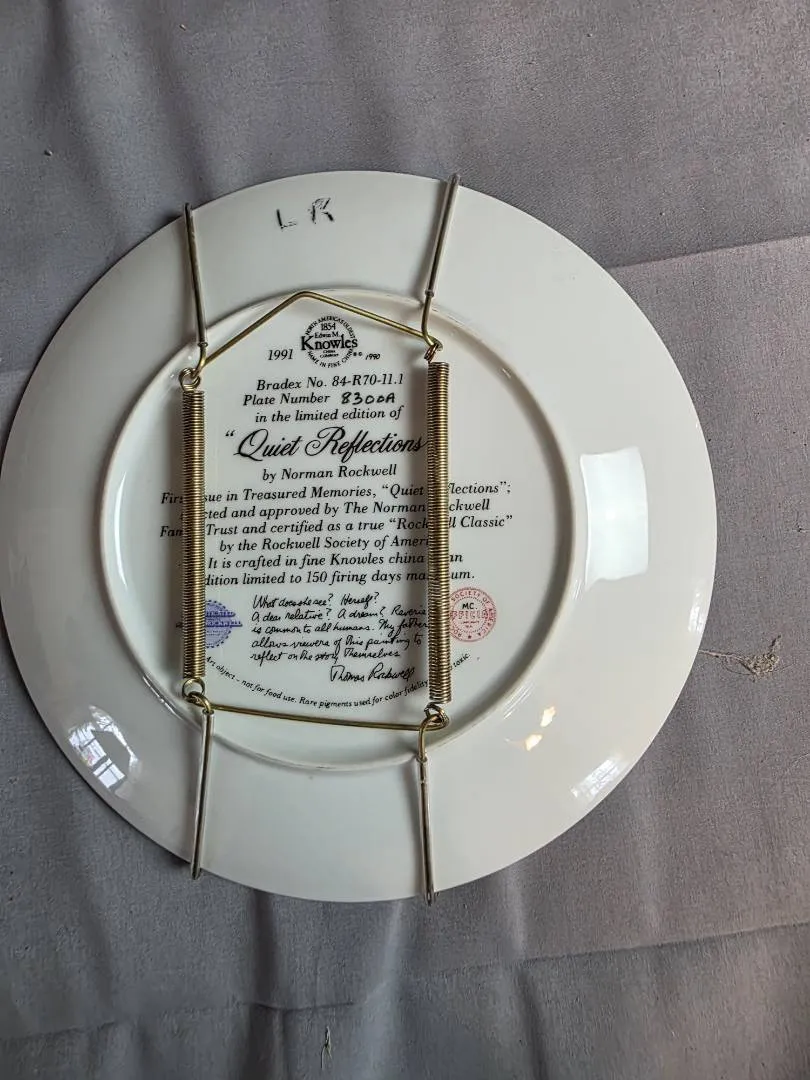 L R
NORTH AMERICA'S OLDEST
1854
Edwin M.
Knowles
CHINA
COMPANY
MAKE IN FINE CHINA
1991
®© 1990
Bradex No. 84-R70-11.1
Plate Number 8300A
in the limited edition of
"Quiet Reflections
by Norman Rockwell
sue in Treasured Memories, "Quiet flections";
cted and approved by The Norman ckwell
Trust and certified as a true "Rock ll Classic"
by the Rockwell Society of Ameri
It is crafted in fine Knowles china an
dition limited to 150 firing days ma um.
What does she see? Herself?
A dear relative? A dream? Reverie
is common to all humans. My father
allows viewers of this painting to
reflect on the story themselves.
Thomas Rockwell
SOCIETY OF AMERICA
M.C.
Art object – not for food use. Rare pigments used for color fidelity toxic.